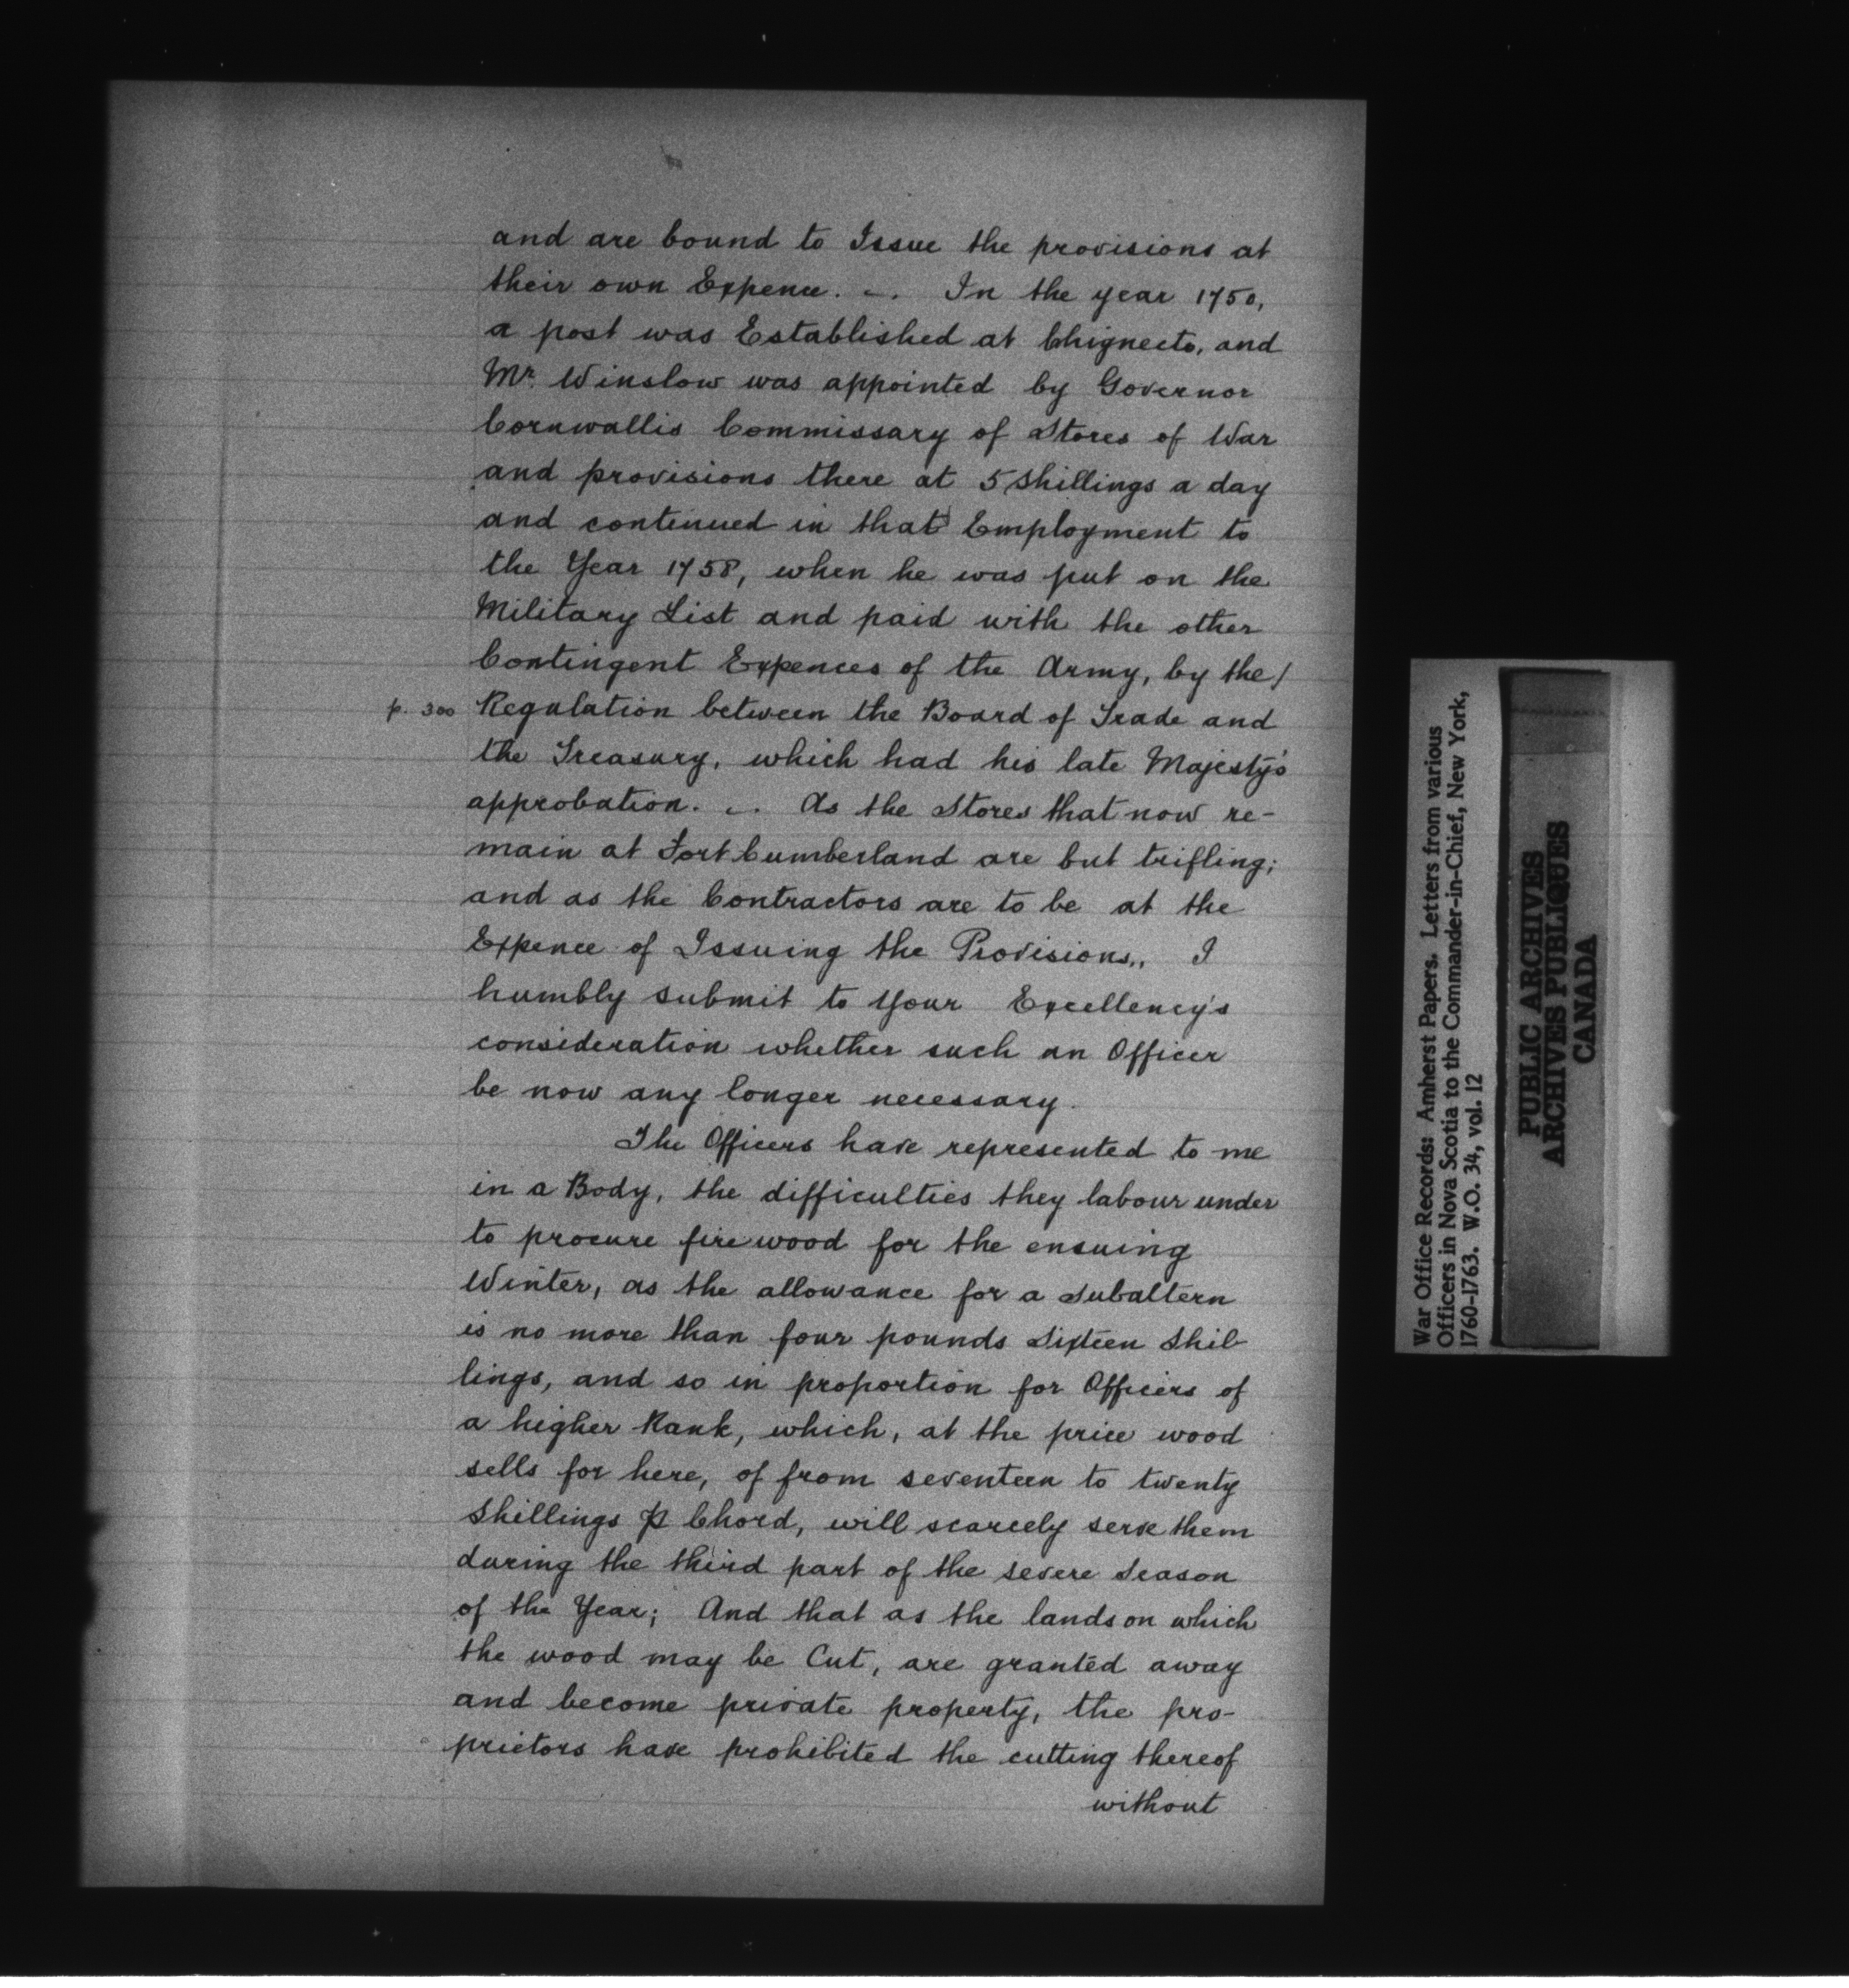 and are bound to Issue the provisions at
their own Expence. -. In the year 1750,
a post was Established at Chignecto, and
Mr. Winslow was appointed by Governor
Cornwallis Commissary of Stores of War
and provisions there at 5 Shillings a day
and continued in that Employment to
the Year 1758, when he was put on the
Military List and paid with the other
Contingent Expences of the Army, by the/
p. 300 Regulation between the Board of Trade and
the Treasury, which had his late Majesty's
approbation. -. As the Stores that now re-
main at Fort Cumberland are but trifling;
and as the Contractors are to be at the
Expence of Issuing the Provisions,. I
humbly submit to Your Excellency's
consideration whether such an Officer
be now any longer necessary.
The Officers have represented to me
in a Body, the difficulties they labour under
to procure fire wood for the ensuing
Winter, as the allowance for a Subaltern
is no more than four pounds Sixteen Shil-
lings, and so in proportion for Officers of
a higher Rank, which, at the price wood
sells for here, of from seventeen to twenty
Shillings ⅌ Chord, will scarcely serve them
during the third part of the severe Season
of the Year; And that as the lands on which
the wood may be Cut, are granted away
and become private property, the pro-
prietors have prohibited the cutting thereof
without
War Office Records: Amherst Papers. Letters from various
Officers in Nova Scotia to the Commander-in-Chief, New York,
1760-1763. W.O. 34, vol. 12
PUBLIC ARCHIVES
ARCHIVES PUBLIQUES
CANADA